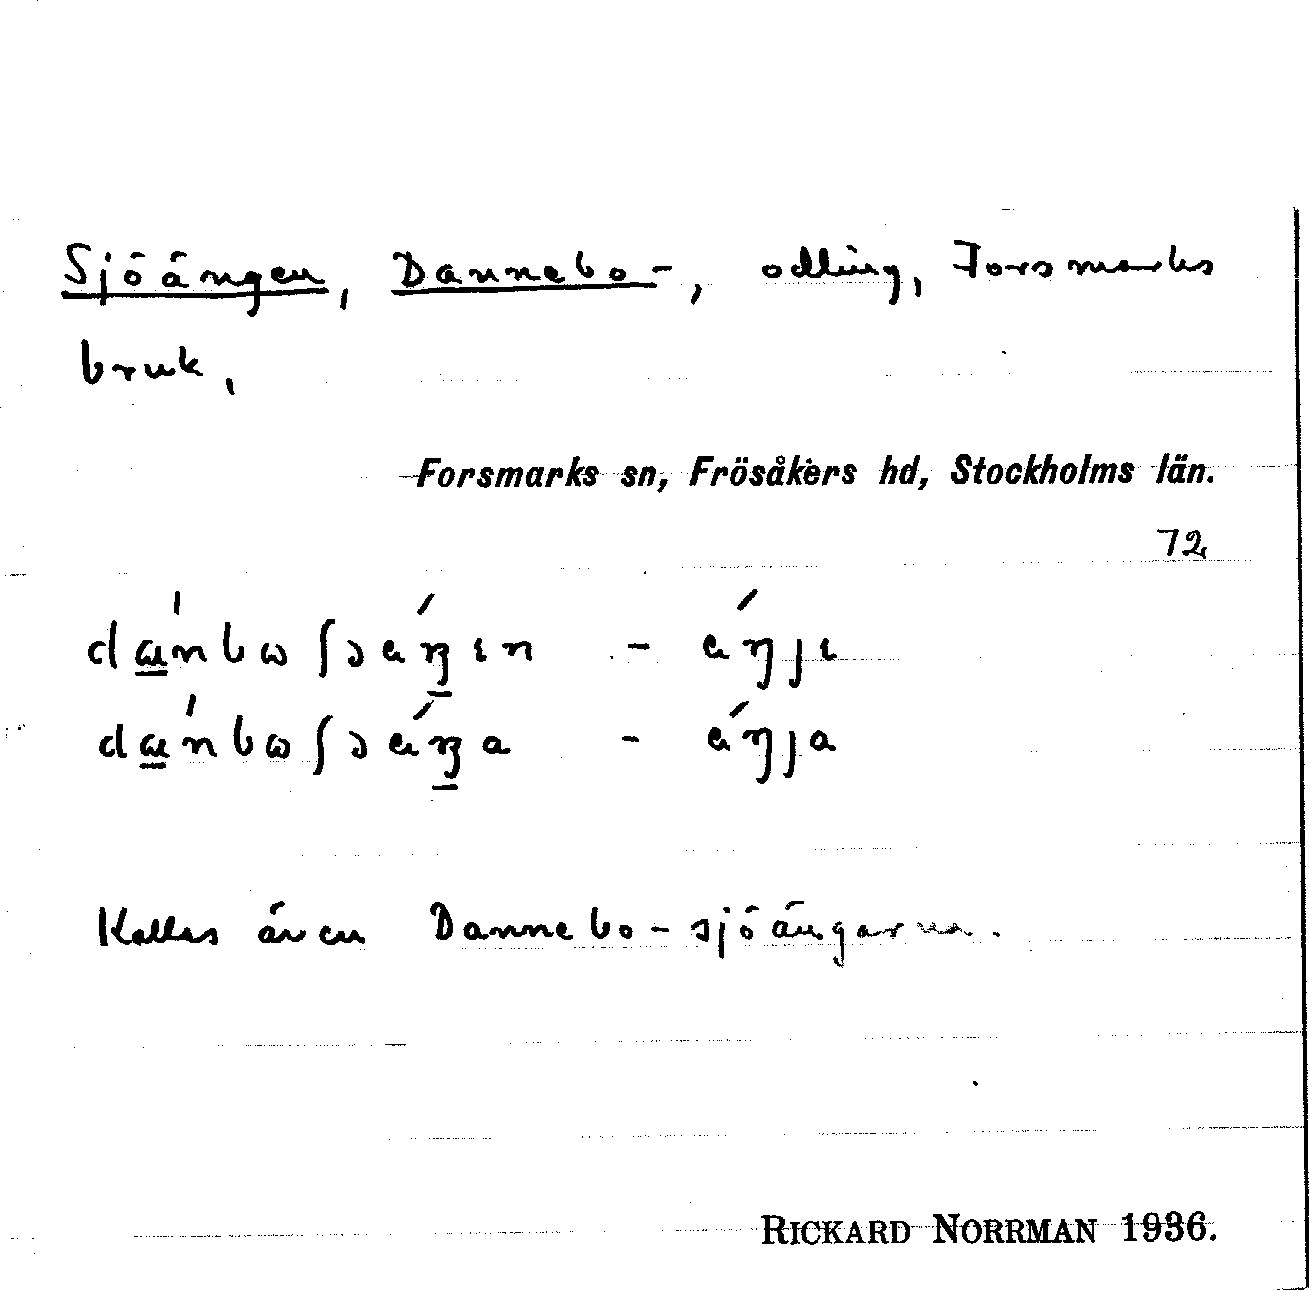 Sjöängen, Dannebo-, odling, Forsmarks
bruk,
Forsmarks sn, Frösåkers hd, Stockholms län.
72
Kallas även Dannebo-sjöängarna.
RICKARD NORRMAN 1936.